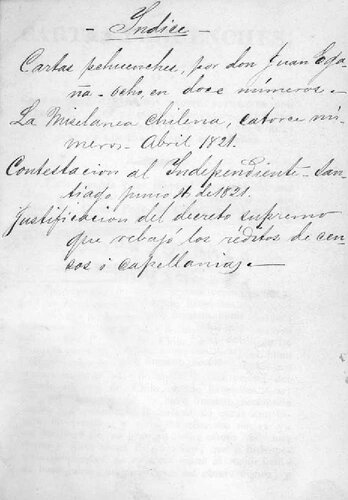 - Indice -
Cartas pehuenches, por don Juan Ega
ña - ocho, en doce números. -
La Miselanea Chilena, catorce nú-
meros - Abril 1821.
Contestacion al Independiente - San-
tiago, junio 4 de 1821.
Justificacion del decreto supremo
que rebajó los réditos de cen-
sos i capellanias. -